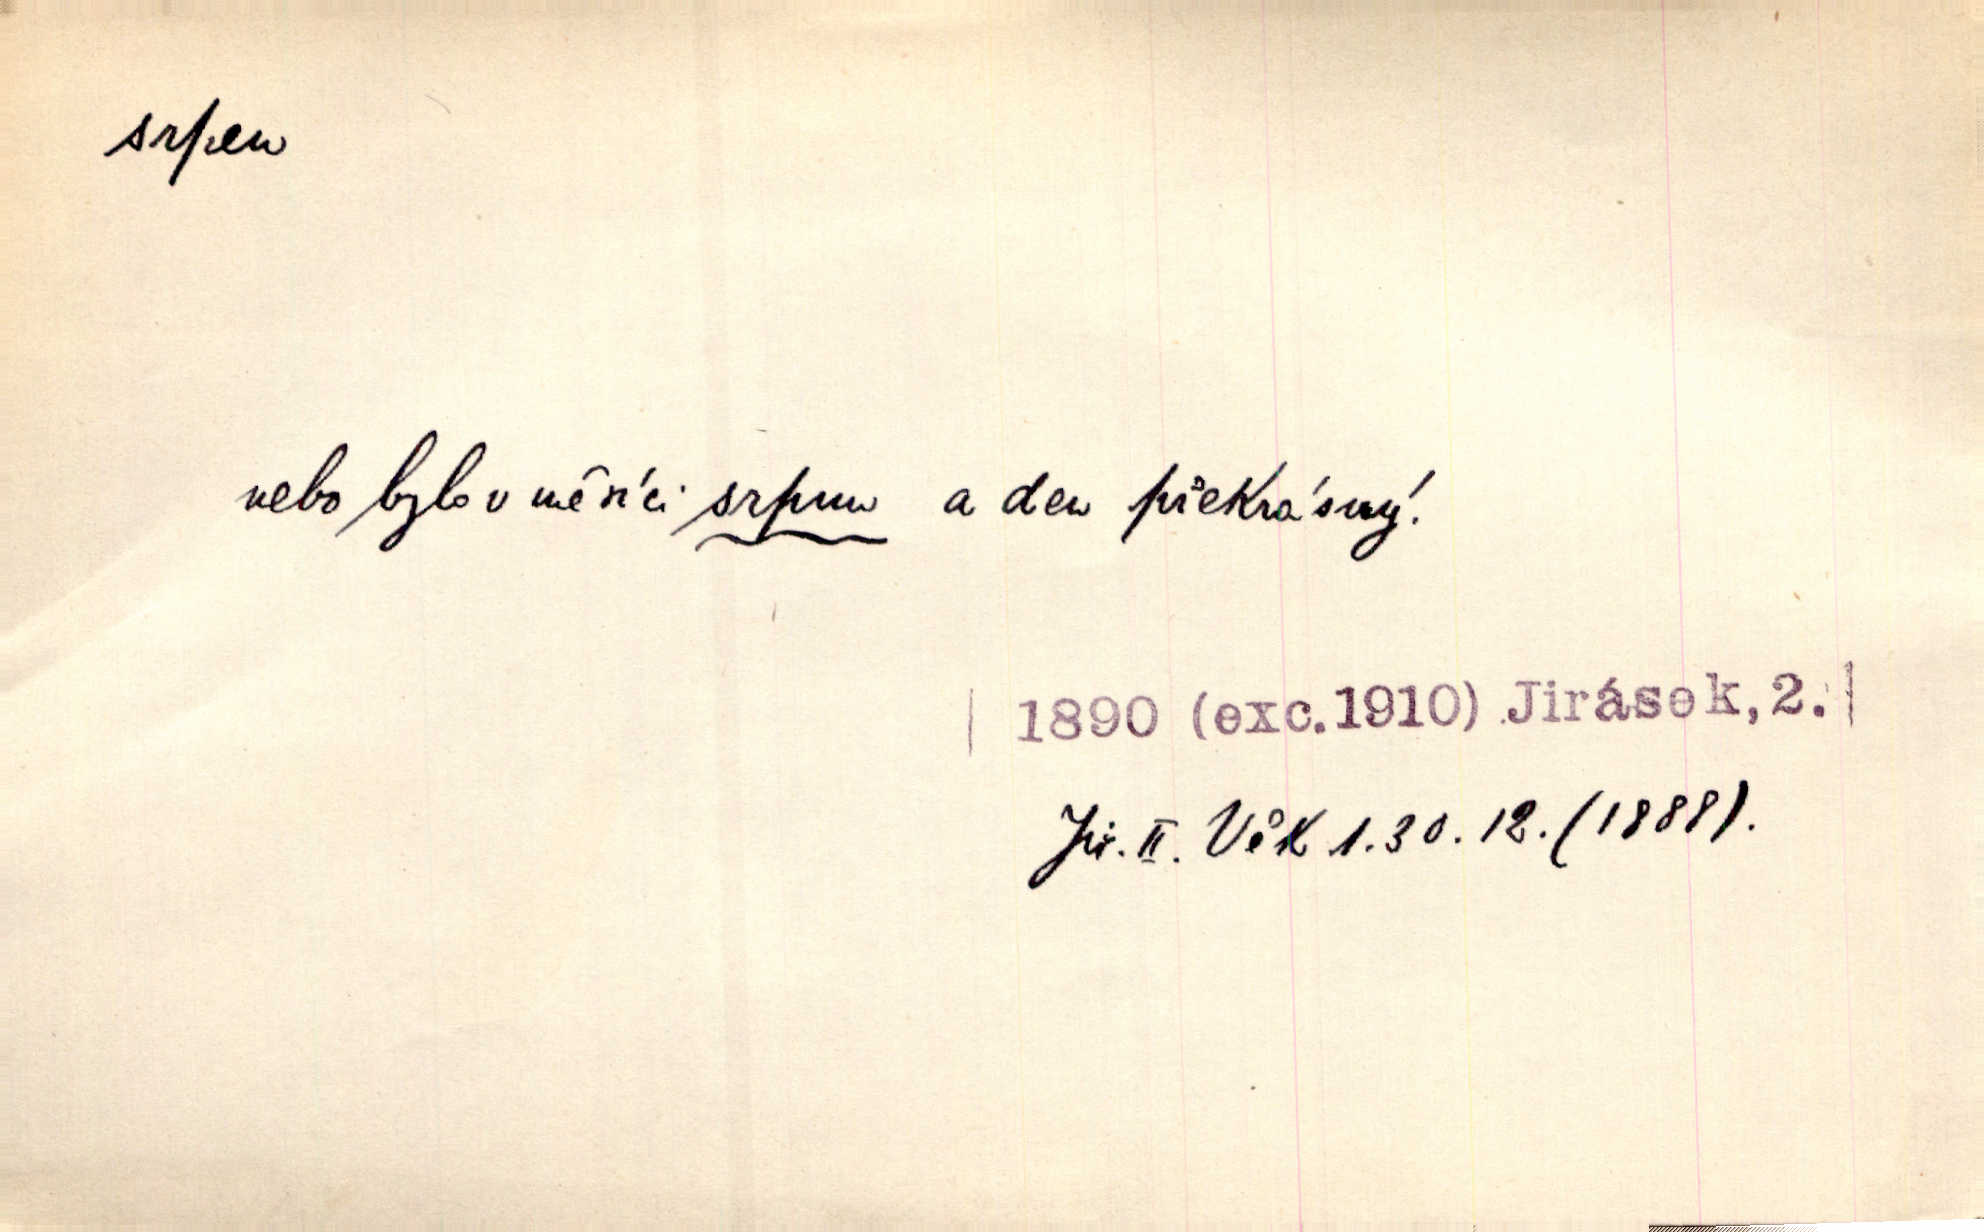 srpen
nebo bylo v měsíci srpnu a den překrásný!
1890 (exc.1910) Jirásek,2.
Jir. II. Věk 1.30.12. (1888).